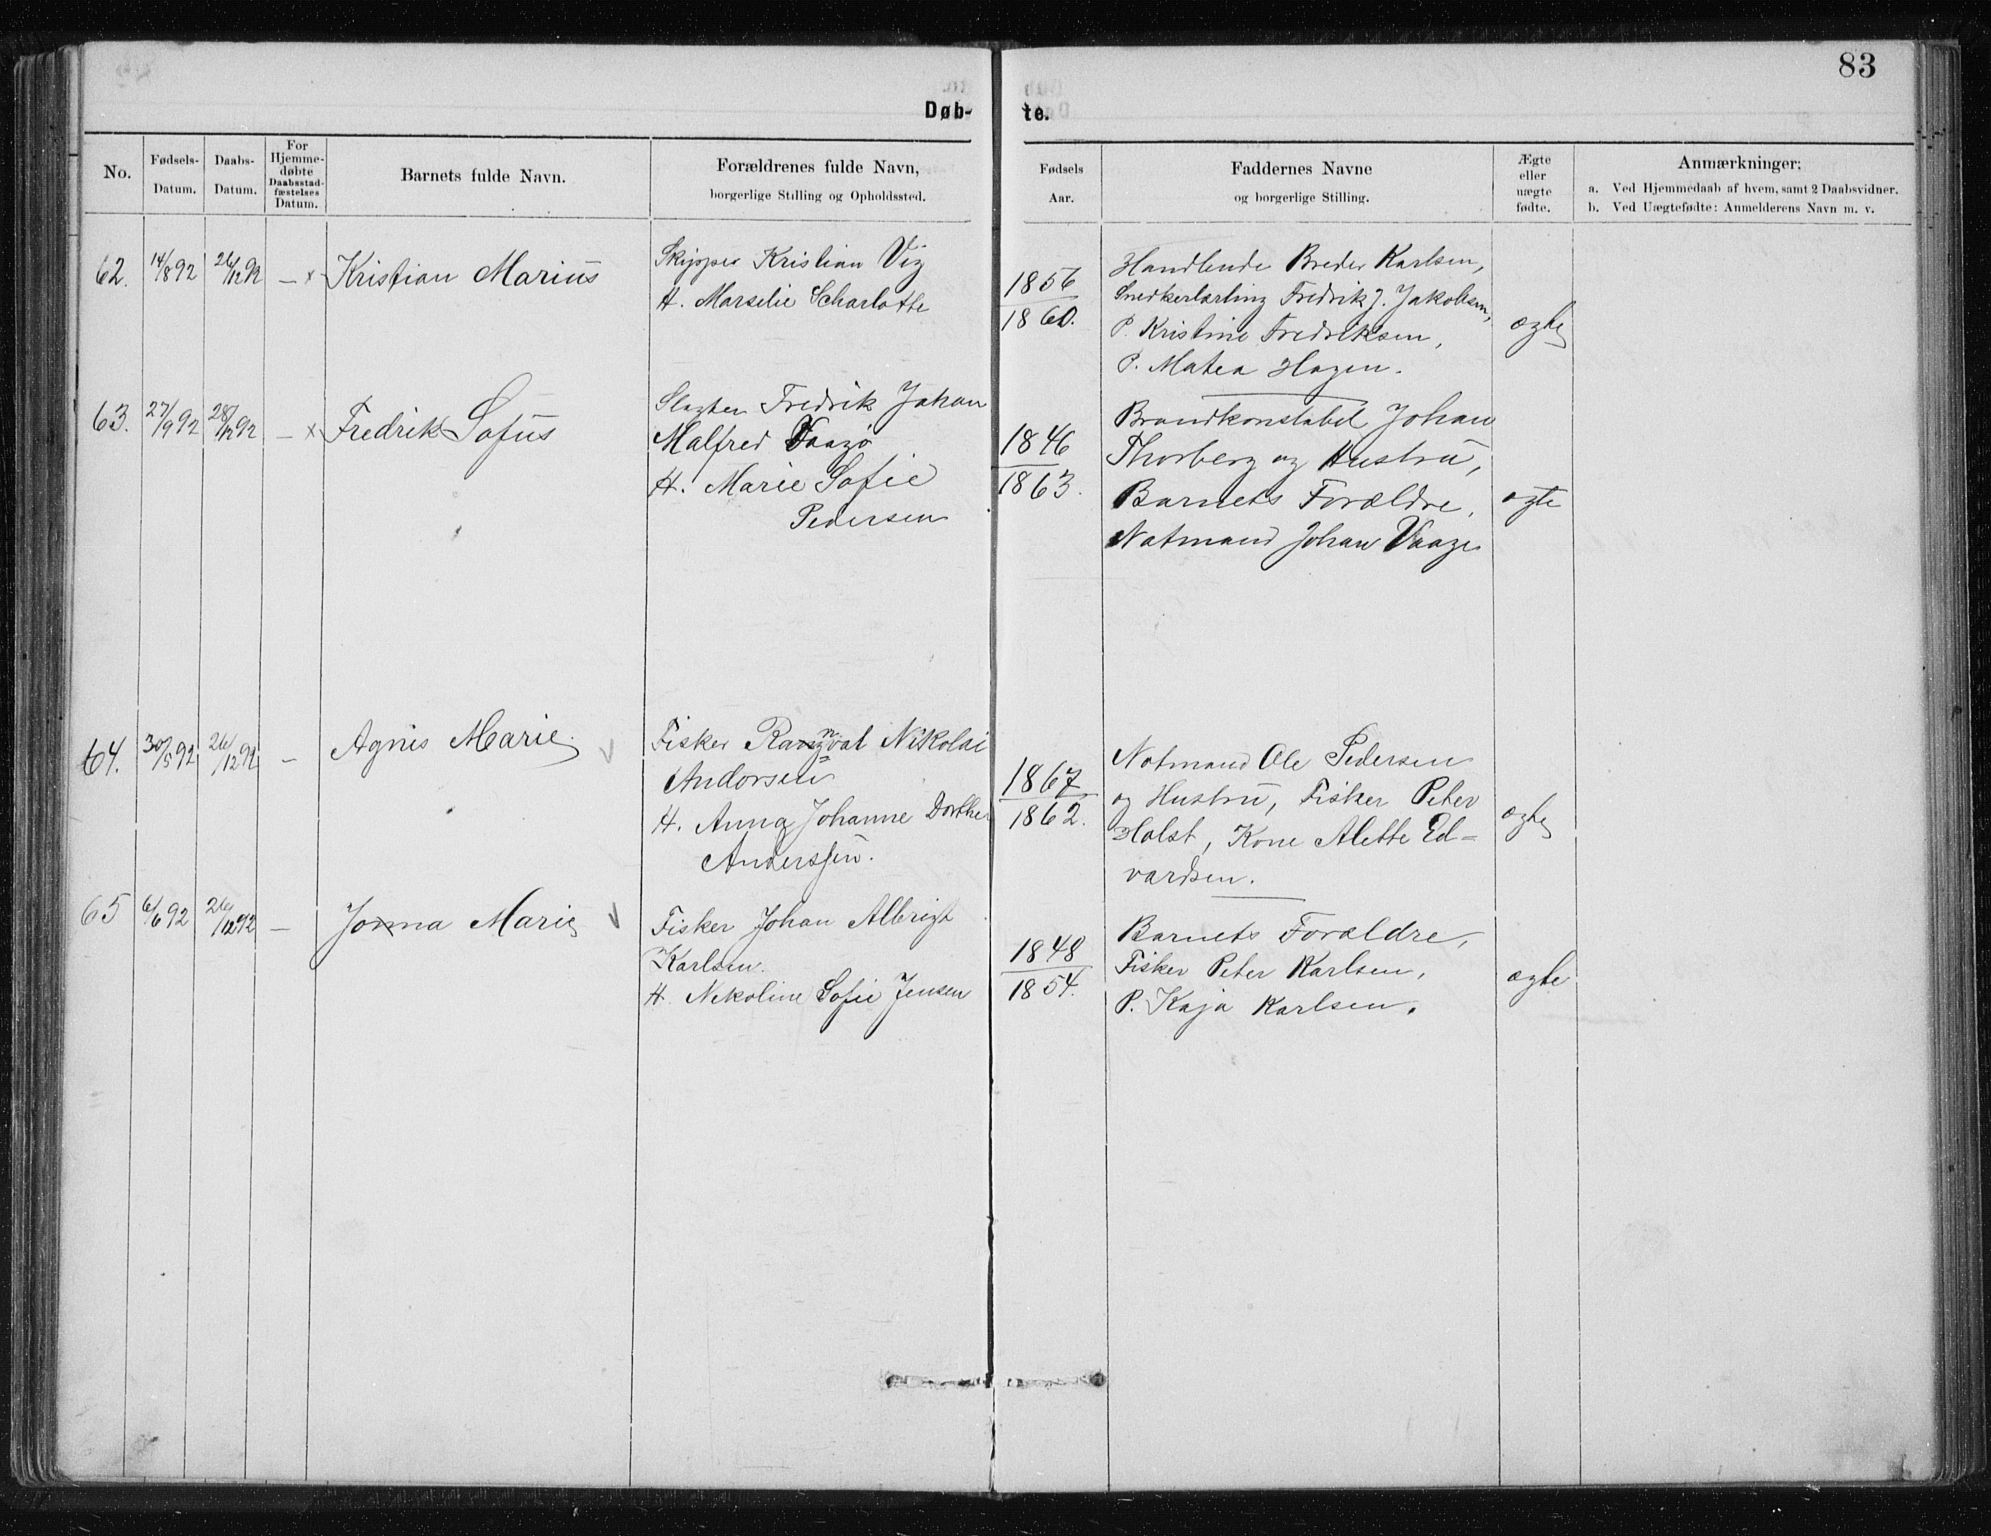 83
Døb-
te.
No.
Fødsels-
Datum.
Daabs-
Datum.
For
Hjemme-
døbte
Daabsstad-
fæstelses
Datum.
Barnets fulde Navn.
Forældrenes fulde Navn,
borgerlige Stilling og Opholdssted.
Fødsels
Aar.
Faddernes Navne
og borgerlige Stilling.
Ægte
eller
uægte
fødte.
Anmærkninger:
a. Ved Hjemmedaab af hvem, samt 2 Daabsvidner.
b. Ved Uægtefødte: Anmelderens Navn m. v.
62. 14/8 92 26/12 92 – x Kristian Marius
Skipper Kristian Vig
H. Marselie Scharlotte
1856
1860.
Handlende Breder Karlsen,
Snedkerlærling Fredrik J. Jakobsen,
P. Kristine Fredriksen,
P. Matea Hagen.
ægte
63. 27/9 92 28/12 92 – x Fredrik Sofus
Slagter Fredrik Johan
Malfred Vaagø
H. Marie Sofie
Pedersen
1846
1863.
Brandkonstabel Johan
Thorberg og Hustru,
Barnets Forældre,
Notmand Johan Vaage
ægte
64. 30/5 92 26/12 92 – Agnes Marie
Fisker Rangval Nikolai
Andorsen
H. Anna Johanne Dorthea
Anderssen.
1867
1862.
Notmand Ole Pedersen
og Hustru, Fisker Peter
Holst, Kone Alette Ed=
vardsen.
ægte
65 6/6 92 26/12 92 – Jonna Marie
Fisker Johan Albrigt
Karlsen.
H. Nikoline Sofie Jensen
1848
1854.
Barnets Forældre,
Fisker Peter Karlsen,
P. Kaja Karlsen.
ægte